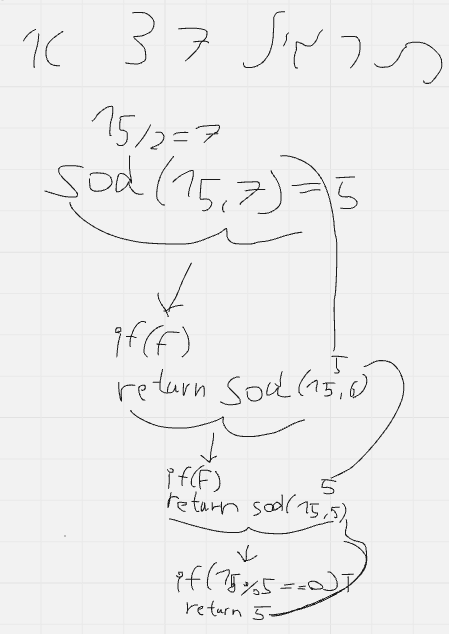 תרגיל 37 א
15/2=7
sod(15,7)=5
if(F)
5
return sod(15,6)
if(F)
5
return sod(15,5)
if(15%5==0)T
return 5